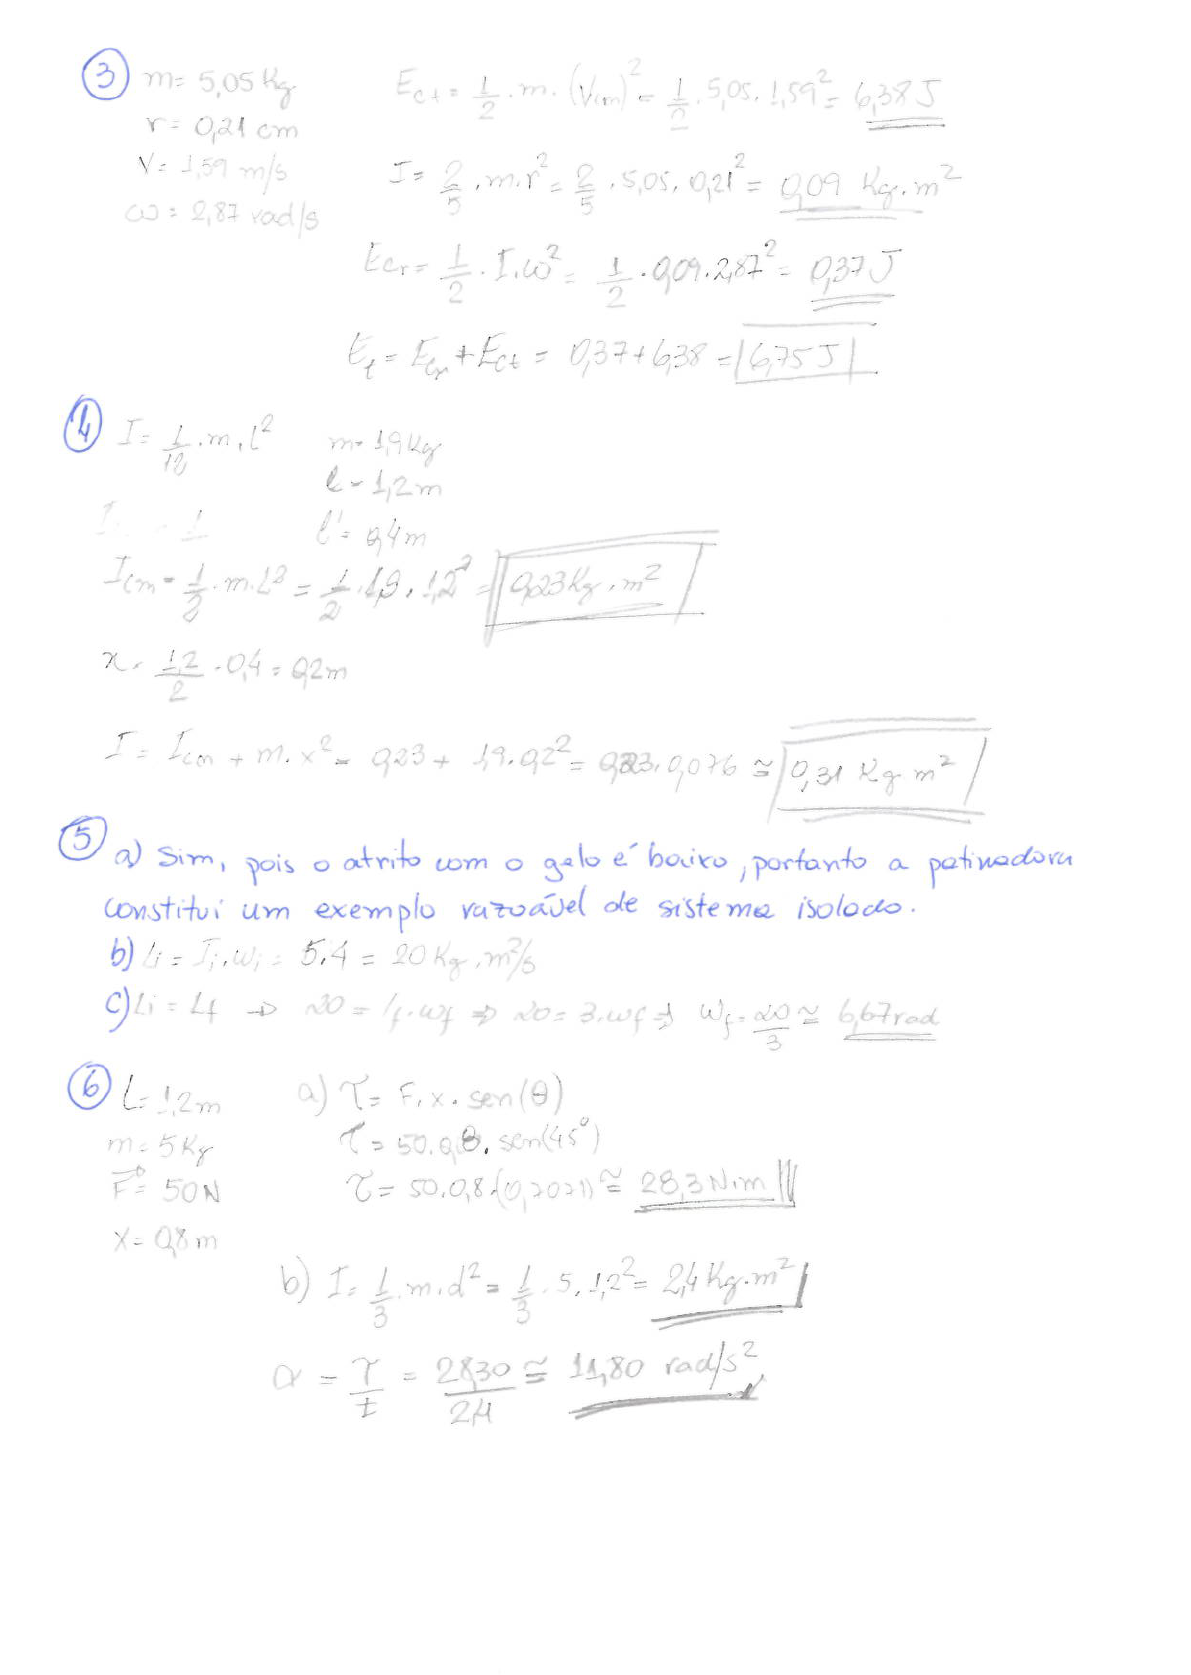 ③ m= 5,05 Kg   Ect = 1/2 . m. (Vcm)² = 1/2 . 5,05. 1,59² = 6,38 J
r = 0,21 cm
V= 1,59 m/s   I= 2/5 . m.r² = 2/5 . 5,05. 0,21² = 0,09 Kg.m²
ω= 2,87 rad/s
Ecr = 1/2 . I.ω² = 1/2 . 0,09. 2,87² = 0,37 J
Et = Ecr + Ect = 0,37+6,38 = 6,75 J
④ I= 1/12 . m. l²   m= 1,9 Kg
l= 1,2 m
l'= 0,4 m
Icm = 1/2 . m. L² = 1/2 . 1,9. 1,2² = 0,23 Kg.m²
x. 1,2/2 - 0,4 = 0,2 m
I = Icm + m. x² = 0,23 + 1,9. 0,2² = 0,23. 0,076 ≅ 0,31 Kg m²
⑤ a) Sim, pois o atrito com o gelo é baixo, portanto a patinadora
constitui um exemplo razoável de sistema isolado.
b) Li = Ii.ωi = 5.4 = 20 Kg.m²/s
c) Li = Lf → 20 = If.ωf ⇒ 20 = 3.ωf ⇒ ωf = 20/3 ≅ 6,67 rad
⑥ L= 1,2 m   a) τ= F. x. sen(θ)
m= 5 Kg   τ= 50. 0,8. sen(45°)
F= 50 N   τ= 50. 0,8. (0,7071) ≅ 28,3 N.m
x= 0,8 m
b) I= 1/3 . m. d² = 1/3 . 5. 1,2² = 2,4 Kg.m²
α = τ/I = 28,30/2,4 ≅ 11,80 rad/s²